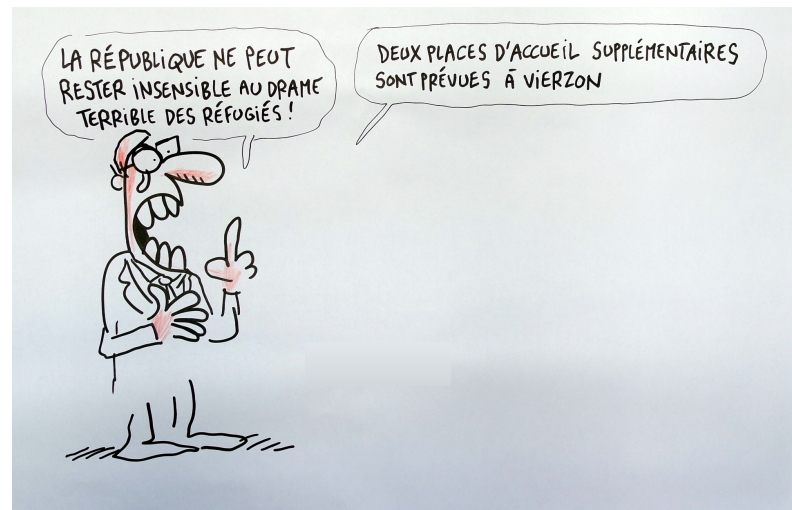 LA RÉPUBLIQUE NE PEUT
RESTER INSENSIBLE AU DRAME
TERRIBLE DES RÉFUGIÉS !
DEUX PLACES D'ACCUEIL SUPPLÉMENTAIRES
SONT PRÉVUES À VIERZON